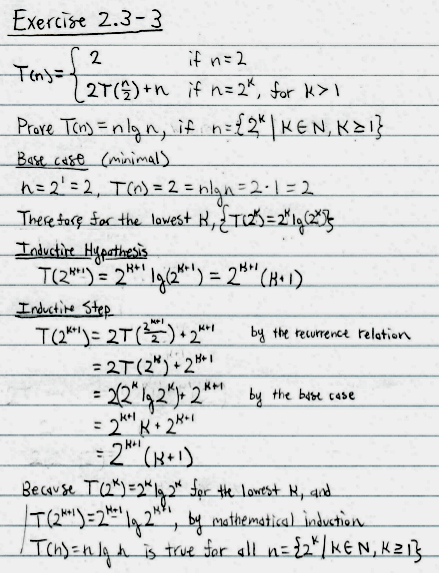 Exercise 2.3-3
T(n) = { 2 if n=2
2T(n/2)+n if n=2^k, for k>1
Prove T(n)=nlgn, if n={2^k | k∈N, k≥1}
Base case (minimal)
n=2^1=2, T(n)=2=nlgn=2·1=2
Therefore for the lowest k, {T(2^k)=2^k lg(2^k)}
Inductive Hypothesis
T(2^k+1)= 2^k+1 lg(2^k+1) = 2^k+1 (k+1)
Inductive Step
T(2^k+1)= 2T(2^k+1/2) + 2^k+1 by the recurrence relation
= 2T(2^k)+2^k+1
= 2(2^k lg 2^k)+ 2^k+1 by the base case
= 2^k+1 k + 2^k+1
= 2^k+1 (k+1)
Because T(2^k)=2^k lg 2^k for the lowest k, and
T(2^k+1)=2^k+1 lg 2^k+1, by mathematical induction
T(n)=n lg n is true for all n={2^k | k∈N, k≥1}